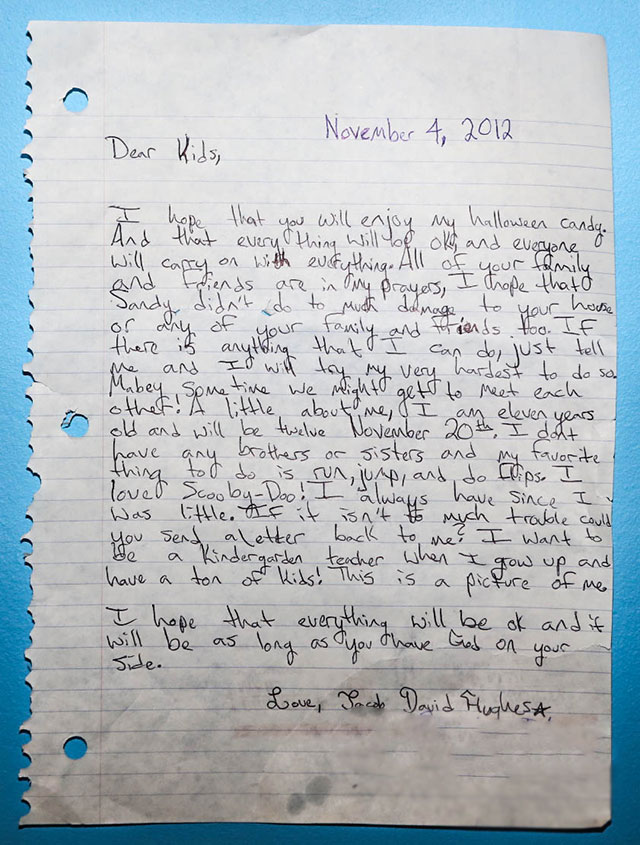 November 4, 2012
Dear Kids,
I hope that you will enjoy my halloween candy.
And that every thing will be ok, and everyone
will carry on with everything. All of your family
and friends are in my prayers, I hope that
Sandy didn't do to much damage to your house
or any of your family and friends too. If
there is anything that I can do, just tell
me and I will try my very hardest to do so.
Mabey sometime we might get to meet each
other! A little about me, I am eleven years
old and will be twelve November 20th. I dont
have any brothers or sisters and my favorite
thing to do is run, jump, and do flips. I
love Scooby-Doo! I always have since I
was little. If it isn't to much trouble could
you send a letter back to me? I want to
be a Kindergarden teacher when I grow up and
have a ton of kids! This is a picture of me.
I hope that everything will be ok and it
will be as long as you have God on your
side.
Love, Jacob David Hughes